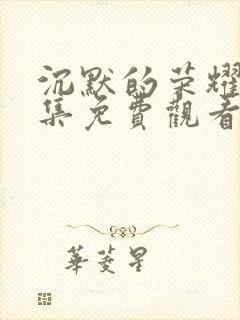 沉默的荣耀
集免費觀看
華菱星